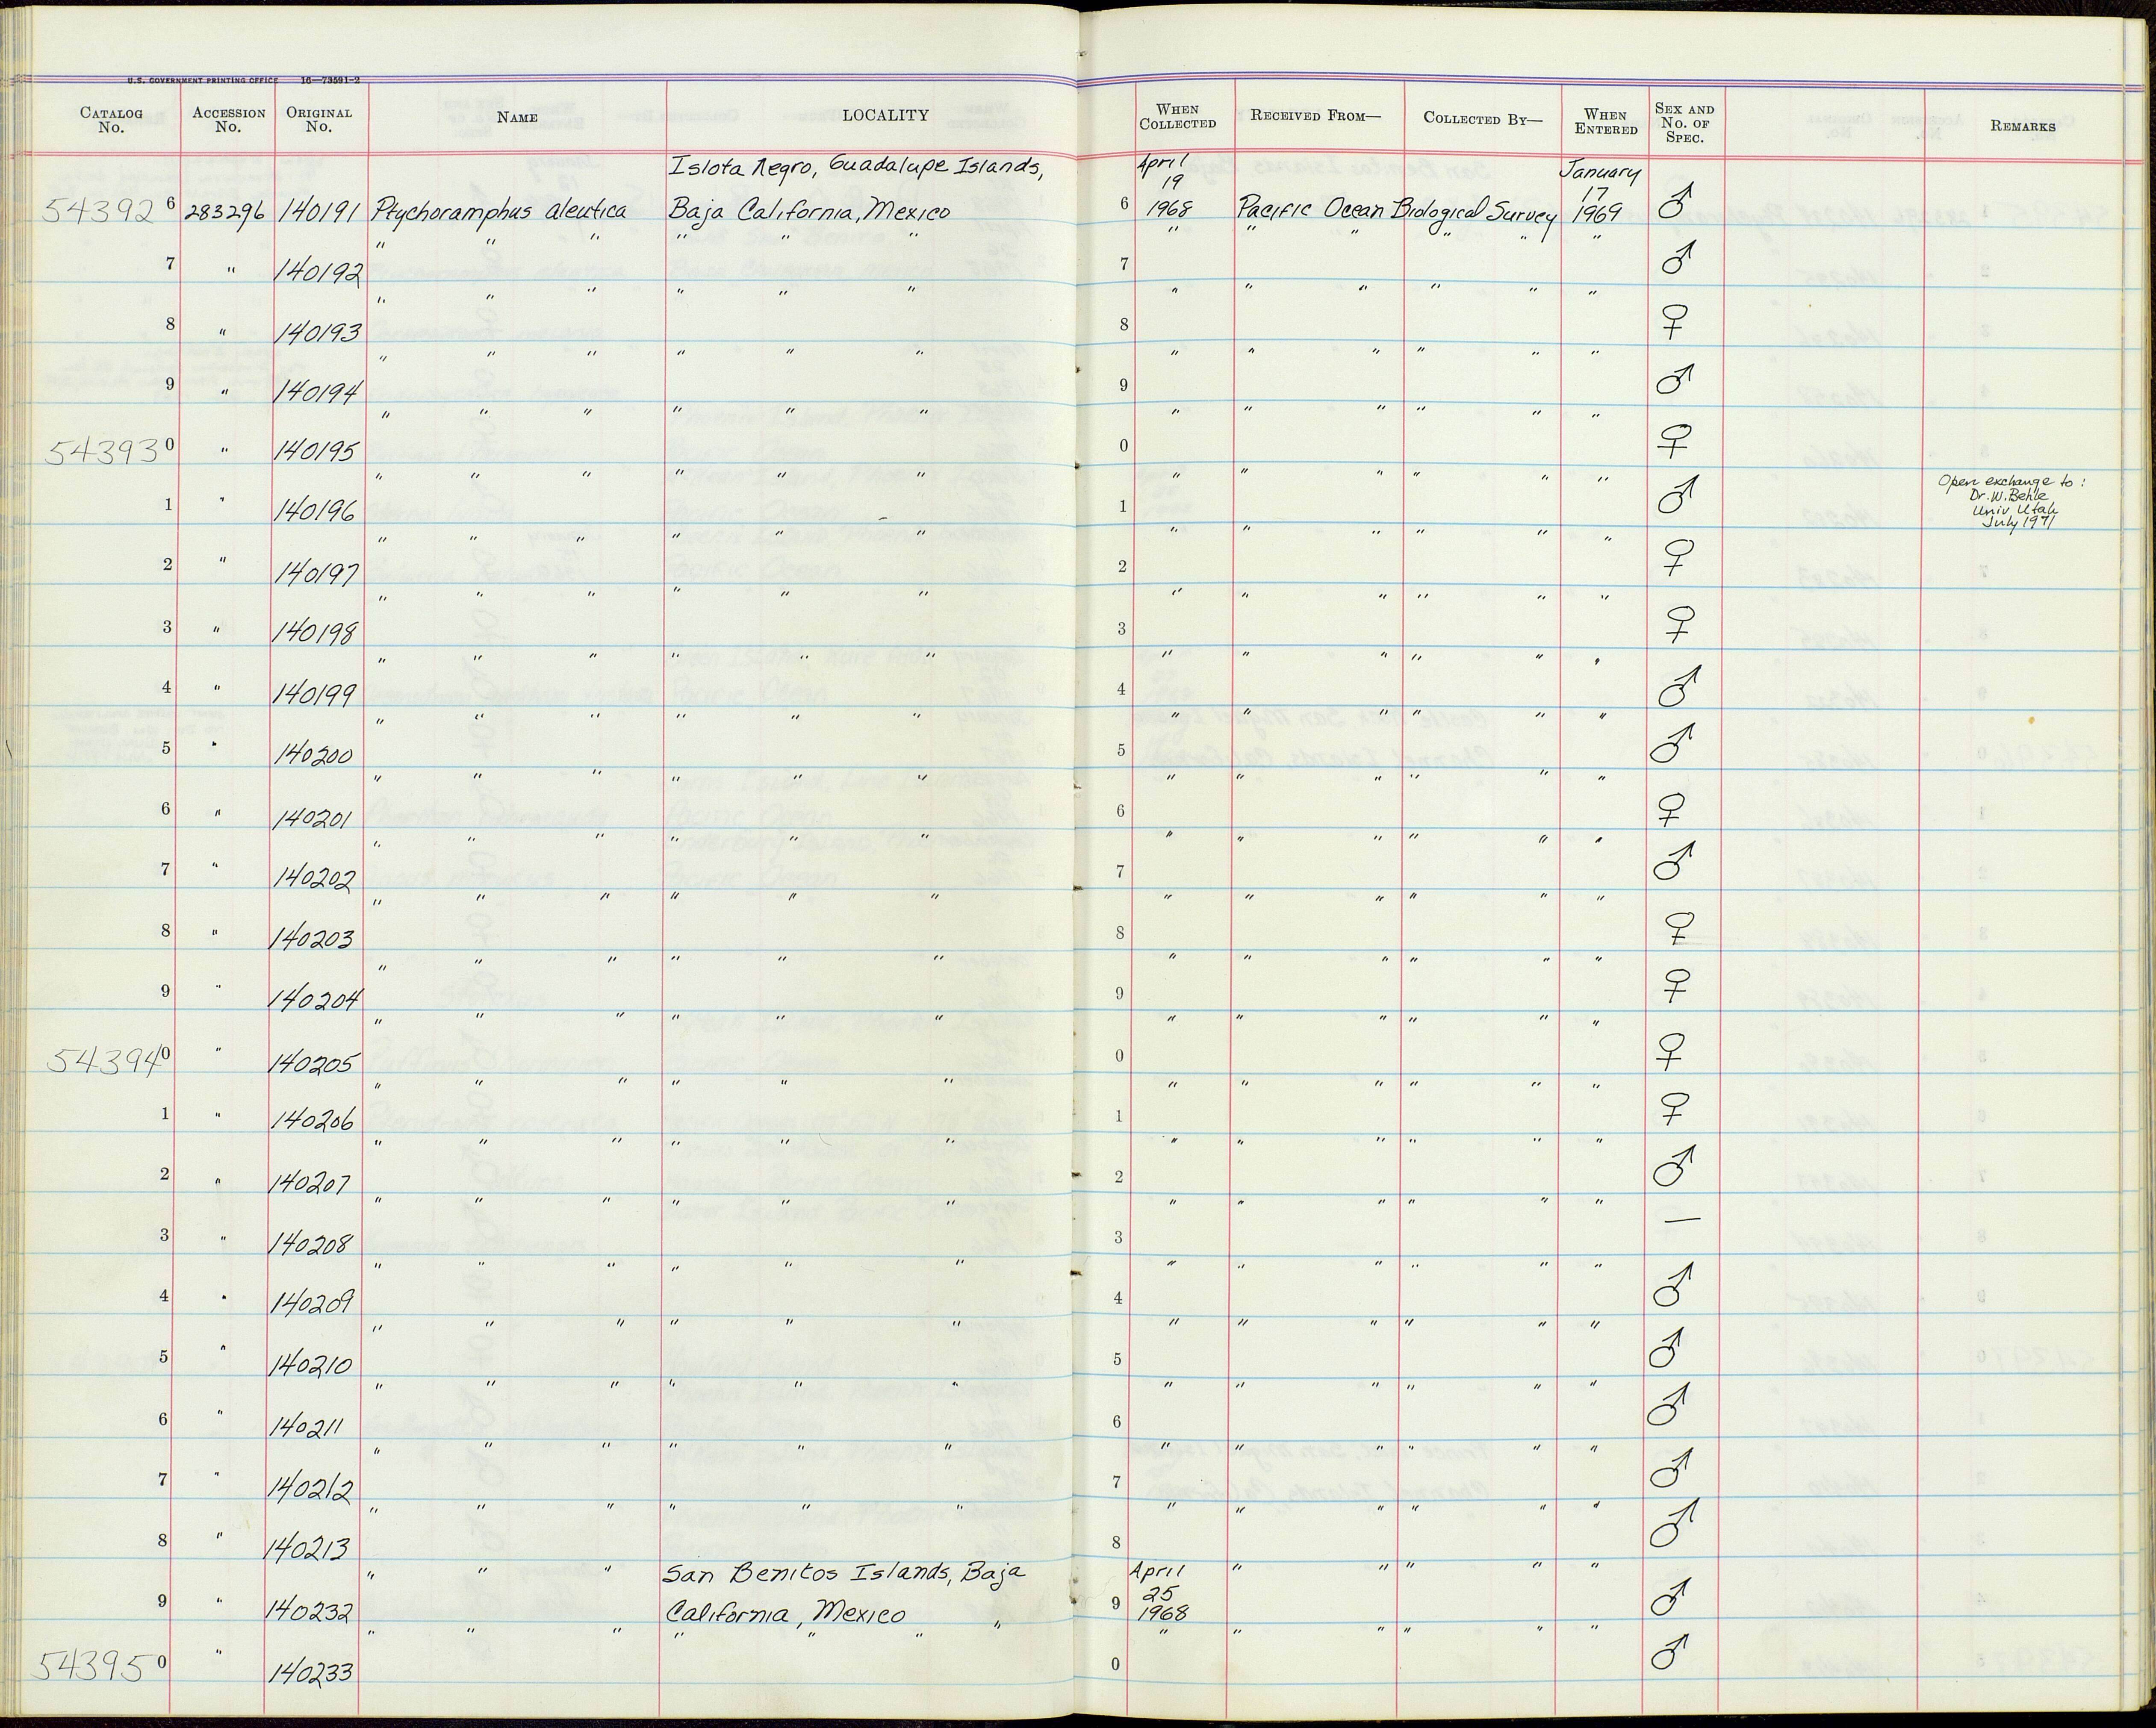 U.S. GOVERNMENT PRINTING OFFICE 16—73591-2
CATALOG No. ACCESSION No. ORIGINAL No. NAME LOCALITY WHEN COLLECTED RECEIVED FROM— COLLECTED BY— WHEN ENTERED SEX AND No. OF SPEC. REMARKS
Islota Negro, Guadalupe Islands, April 19 January 17
54392 6 283296 140191 Ptychoramphus aleutica Baja California, Mexico 6 1968 Pacific Ocean Biological Survey 1969 ♂
7 " 140192 " " " " " " 7 " " " " " " ♂
8 " 140193 " " " " " " 8 " " " " " " ♀
9 " 140194 " " " " " " 9 " " " " " " ♂
54393 0 " 140195 " " " " " " 0 " " " " " " ♀
1 " 140196 " " " " " " 1 " " " " " " ♂ Open exchange to:
Dr. W. Behle
Univ. Utah
July 1971
2 " 140197 " " " " " " 2 " " " " " " ♀
3 " 140198 " " " " " " 3 " " " " " " ♀
4 " 140199 " " " " " " 4 " " " " " " ♂
5 " 140200 " " " " " " 5 " " " " " " ♂
6 " 140201 " " " " " " 6 " " " " " " ♀
7 " 140202 " " " " " " 7 " " " " " " ♂
8 " 140203 " " " " " " 8 " " " " " " ♀
9 " 140204 " " " " " " 9 " " " " " " ♀
54394 0 " 140205 " " " " " " 0 " " " " " " ♀
1 " 140206 " " " " " " 1 " " " " " " ♀
2 " 140207 " " " " " " 2 " " " " " " ♂
3 " 140208 " " " " " " 3 " " " " " " —
4 " 140209 " " " " " " 4 " " " " " " ♂
5 " 140210 " " " " " " 5 " " " " " " ♂
6 " 140211 " " " " " " 6 " " " " " " ♂
7 " 140212 " " " " " " 7 " " " " " " ♂
8 " 140213 " " " " " " 8 " " " " " " ♂
" " " San Benitos Islands, Baja April 25 " " " " "
9 " 140232 California, Mexico 9 1968 ♂
54395 0 " 140233 " " " " " " " 0 " " " " " " ♂